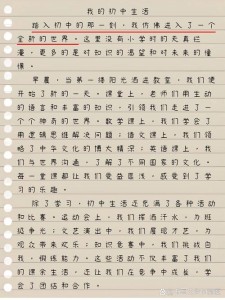 我的初中生活
踏入初中的那一刻，我仿佛进入了一个
全新的世界。这里没有小学时的天真烂
漫，更多的是对知识的渴望和对未来的憧
憬。
早晨，当第一缕阳光洒进教室，我们便
开始了新的一天。课堂上，老师们用生动
的语言和丰富的知识，引领我们走进了一
个个神奇的世界。数学课上，我们学会了
用逻辑思维解决问题；语文课上，我们领
略了中华文化的博大精深；英语课上，我
们与世界沟通，了解了不同国家的文化。
每一堂课都让我们受益匪浅，感受到了学
习的乐趣。
除了学习，初中生活还充满了各种活动
和比赛。运动会上，我们挥洒汗水，为班
级争光；文艺演出中，我们展现才艺，为
观众带来欢乐；知识竞赛中，我们挑战自
我，锻炼能力。这些活动不仅丰富了我们
的课余生活，还让我们在竞争中成长，学
会了团结和合作。